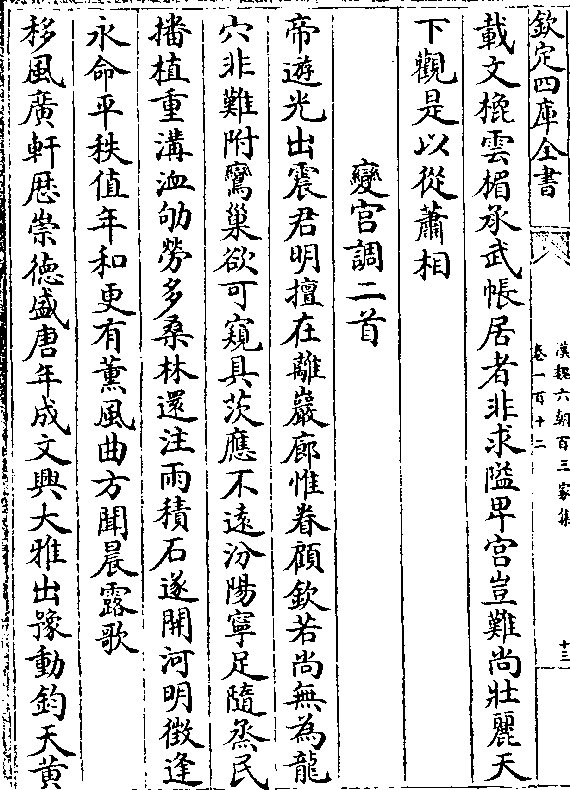 欽定四庫全書
漢魏六朝百三家集
卷一百十二
十三
載文槐雲楣承武帳居者非求隘卑宮豈難尚壯麗天
下觀是以從蕭相
變宮調二首
帝遊光出震君明擅在離巖廊惟眷顧欽若尚無為龍
穴非難附鸞巢欲可窺具茨應不遠汾陽寧足隨烝民
播植重溝洫劬勞多桑林還注雨積石遂開河明徴逢
永命平秩值年和更有薰風曲方聞晨露歌
移風廣軒厯崇德盛唐年成文興大雅出豫動鈞天黄